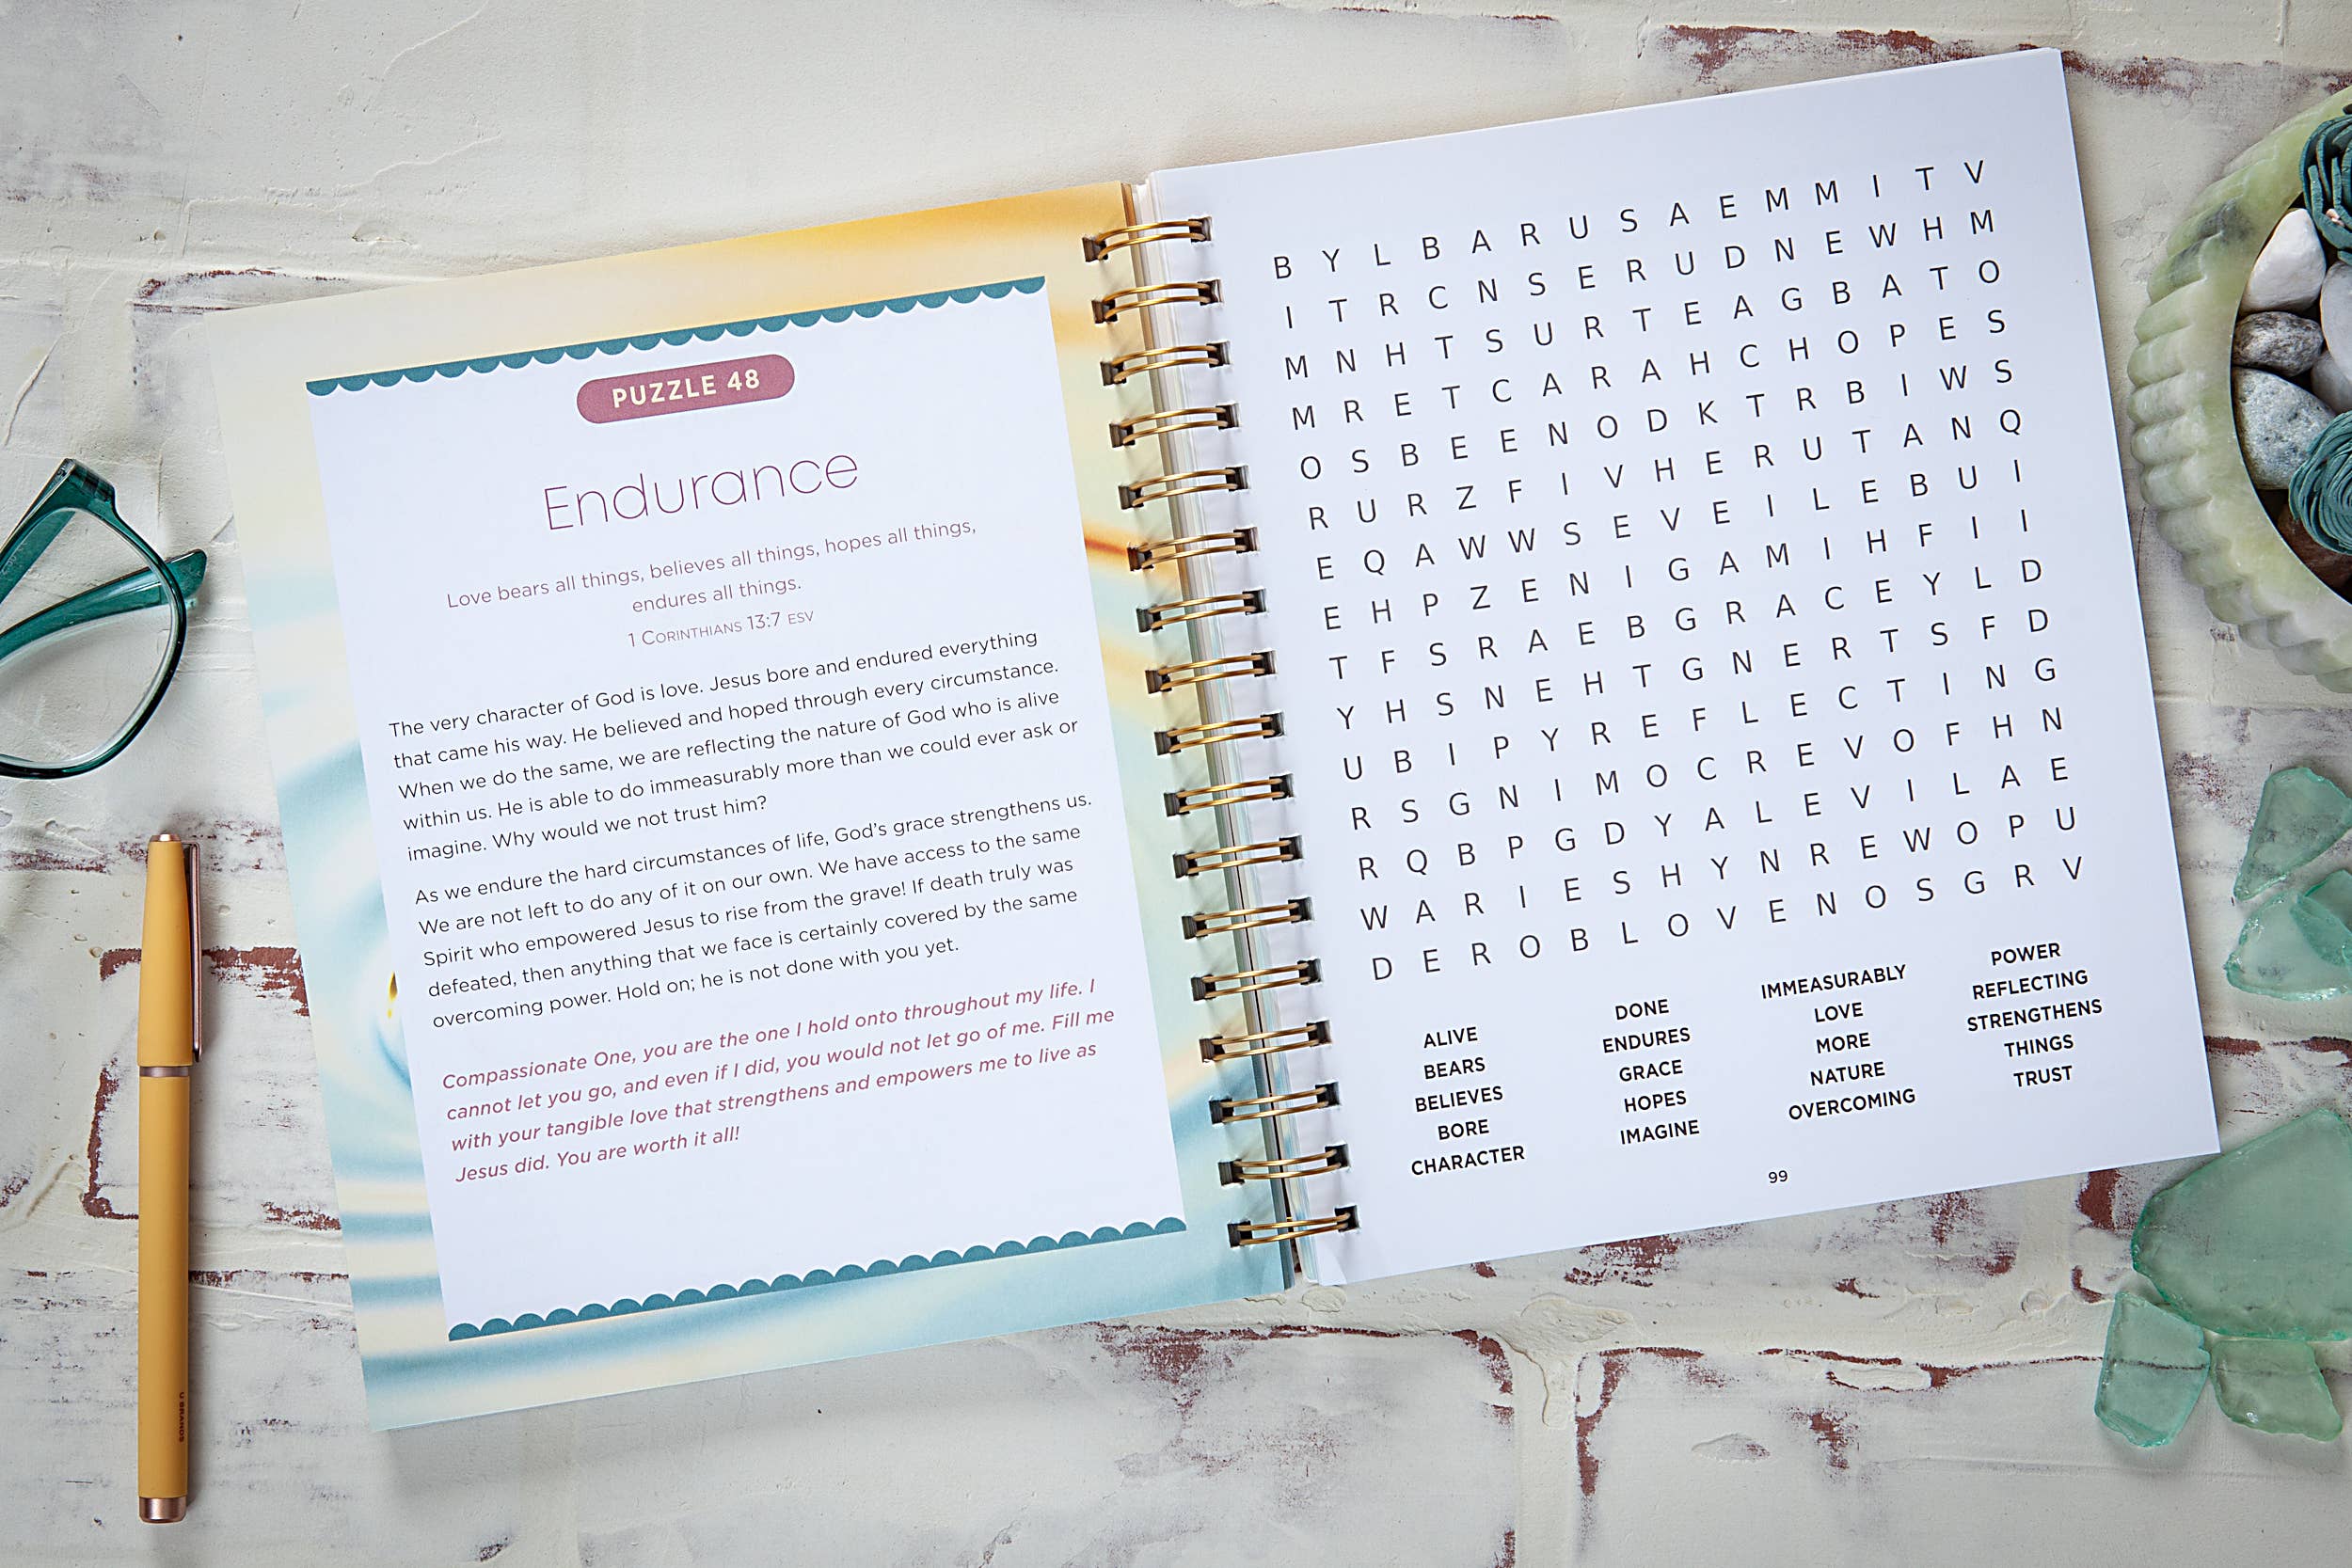 PUZZLE 48
Endurance
Love bears all things, believes all things, hopes all things,
endures all things.
1 CORINTHIANS 13:7 ESV
The very character of God is love. Jesus bore and endured everything
that came his way. He believed and hoped through every circumstance.
When we do the same, we are reflecting the nature of God who is alive
within us. He is able to do immeasurably more than we could ever ask or
imagine. Why would we not trust him?
As we endure the hard circumstances of life, God's grace strengthens us.
We are not left to do any of it on our own. We have access to the same
Spirit who empowered Jesus to rise from the grave! If death truly was
defeated, then anything that we face is certainly covered by the same
overcoming power. Hold on; he is not done with you yet.
Compassionate One, you are the one I hold onto throughout my life. I
cannot let you go, and even if I did, you would not let go of me. Fill me
with your tangible love that strengthens and empowers me to live as
Jesus did. You are worth it all!
B Y L B A R U S A E M M I T V
I T R C N S E R U D N E W H M
M N H T S U R T E A G B A T O
M R E T C A R A H C H O P E S
O S B E E N O D K T R B I W S
R U R Z F I V H E R U T A N Q
E Q A W W S E V E I L E B U I
E H P Z E N I G A M I H F I I
T F S R A E B G R A C E Y L D
Y H S N E H T G N E R T S F D
U B I P Y R E F L E C T I N G
R S G N I M O C R E V O F H N
R Q B P G D Y A L E V I L A E
W A R I E S H Y N R E W O P U
D E R O B L O V E N O S G R V
ALIVE
BEARS
BELIEVES
BORE
CHARACTER
DONE
ENDURES
GRACE
HOPES
IMAGINE
IMMEASURABLY
LOVE
MORE
NATURE
OVERCOMING
POWER
REFLECTING
STRENGTHENS
THINGS
TRUST
99
U BRANDS